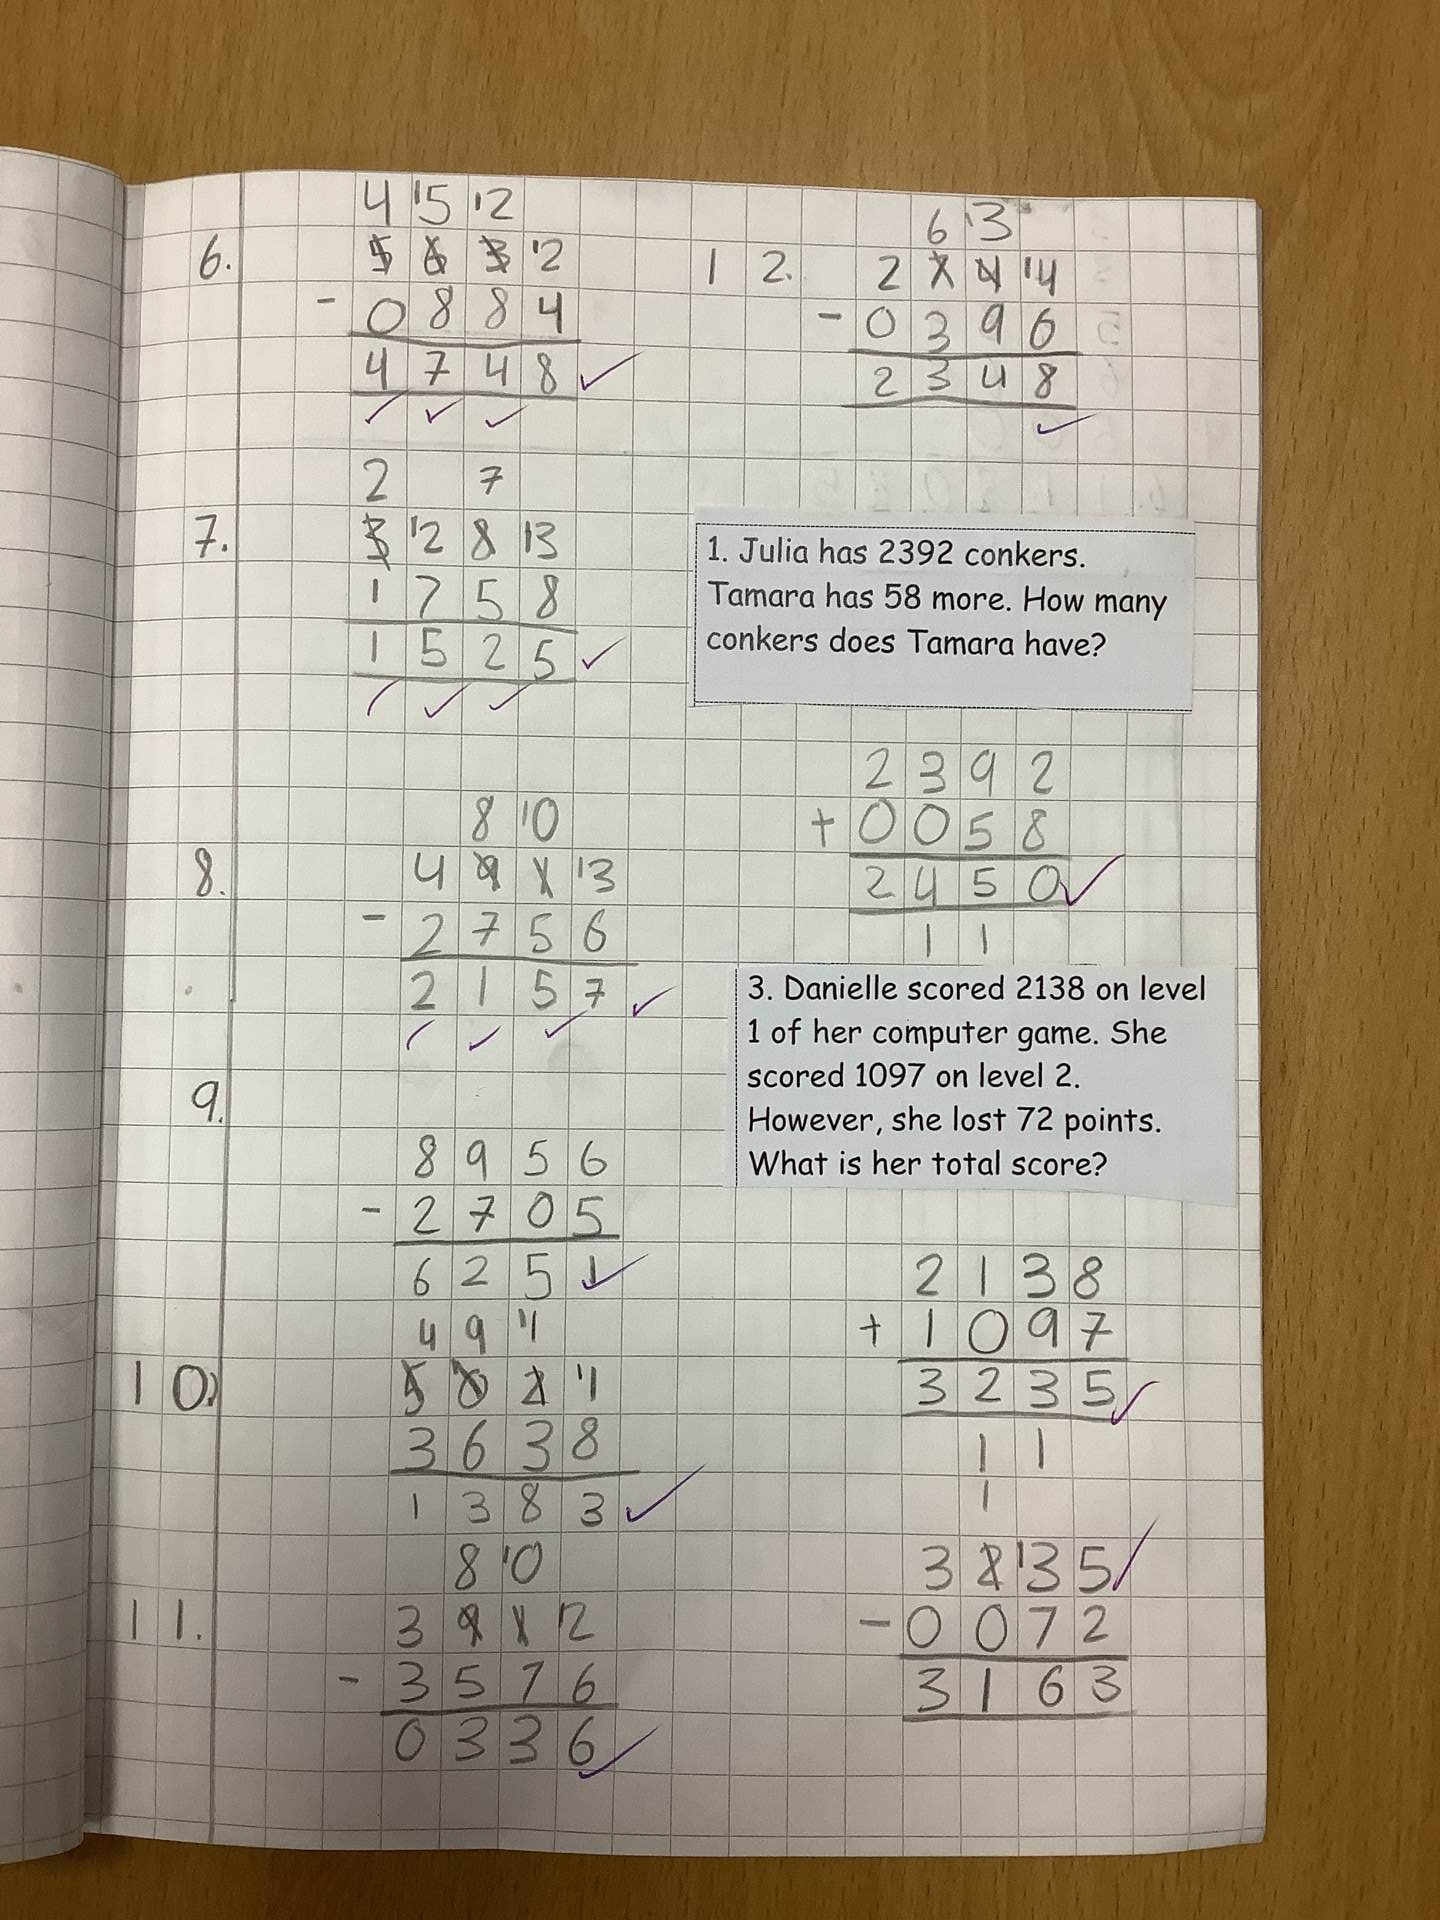 4 '5 '2
6. 5 6 3 '2
- 0 8 8 4
4 7 4 8 ✓
✓ ✓ ✓
2 7
7. 3 '2 8 '3
1 7 5 8
1 5 2 5 ✓
✓ ✓ ✓
8 '0
8. 4 9 1 '3
- 2 7 5 6
2 1 5 7 ✓
✓ ✓ ✓
9.
8 9 5 6
- 2 7 0 5
6 2 5 1 ✓
4 9 '1
10. 5 0 2 '1
3 6 3 8
1 3 8 3 ✓
8 '0
11. 3 9 1 '2
- 3 5 7 6
0 3 3 6 ✓
6 '3
12. 2 7 4 '4
- 0 3 9 6
2 3 4 8
✓
1. Julia has 2392 conkers.
Tamara has 58 more. How many
conkers does Tamara have?
2 3 9 2
+ 0 0 5 8
2 4 5 0 ✓
1 1
3. Danielle scored 2138 on level
1 of her computer game. She
scored 1097 on level 2.
However, she lost 72 points.
What is her total score?
2 1 3 8
+ 1 0 9 7
3 2 3 5 ✓
1 1
1
3 2 '3 5 ✓
- 0 0 7 2
3 1 6 3